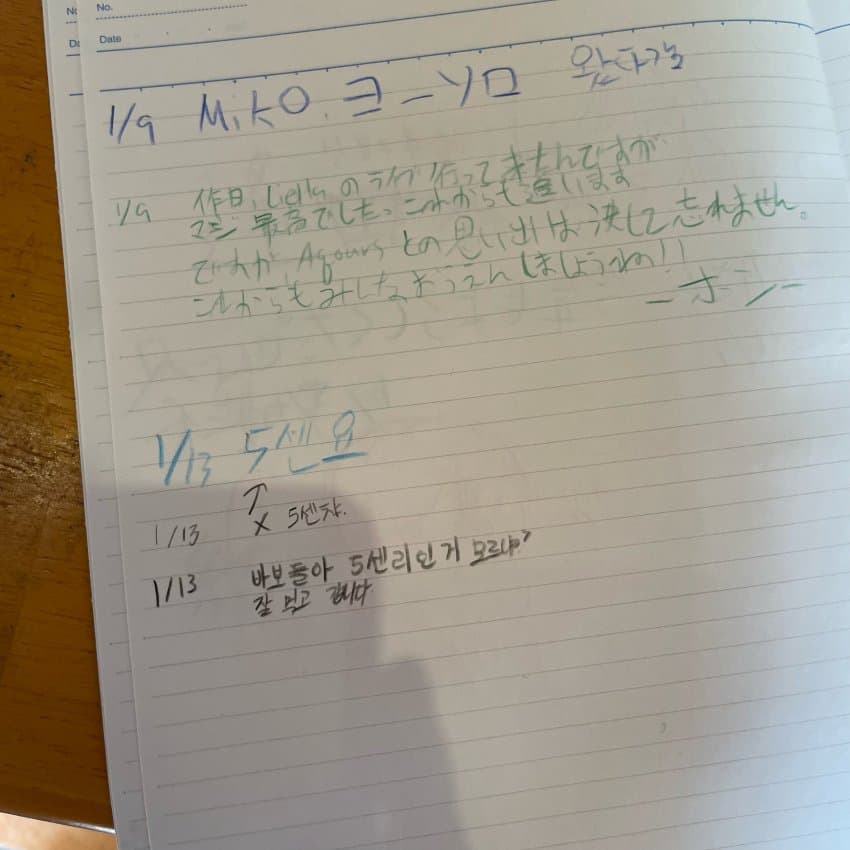 No.
No.
Date
1/9 MiKO. ヨーソロ 왔다감
1/9 作日、Liellaのライブ行ってきたんですが
マジ最高でした。これからも追います
ですが、Aqoursとの思い出は決して忘れません。
これからも みしましょうね!!
1/13 5센요
↑
1/13 x 5센챠.
1/13 바보들아 5센리인거 모르냐?
잘 먹고 갑니다